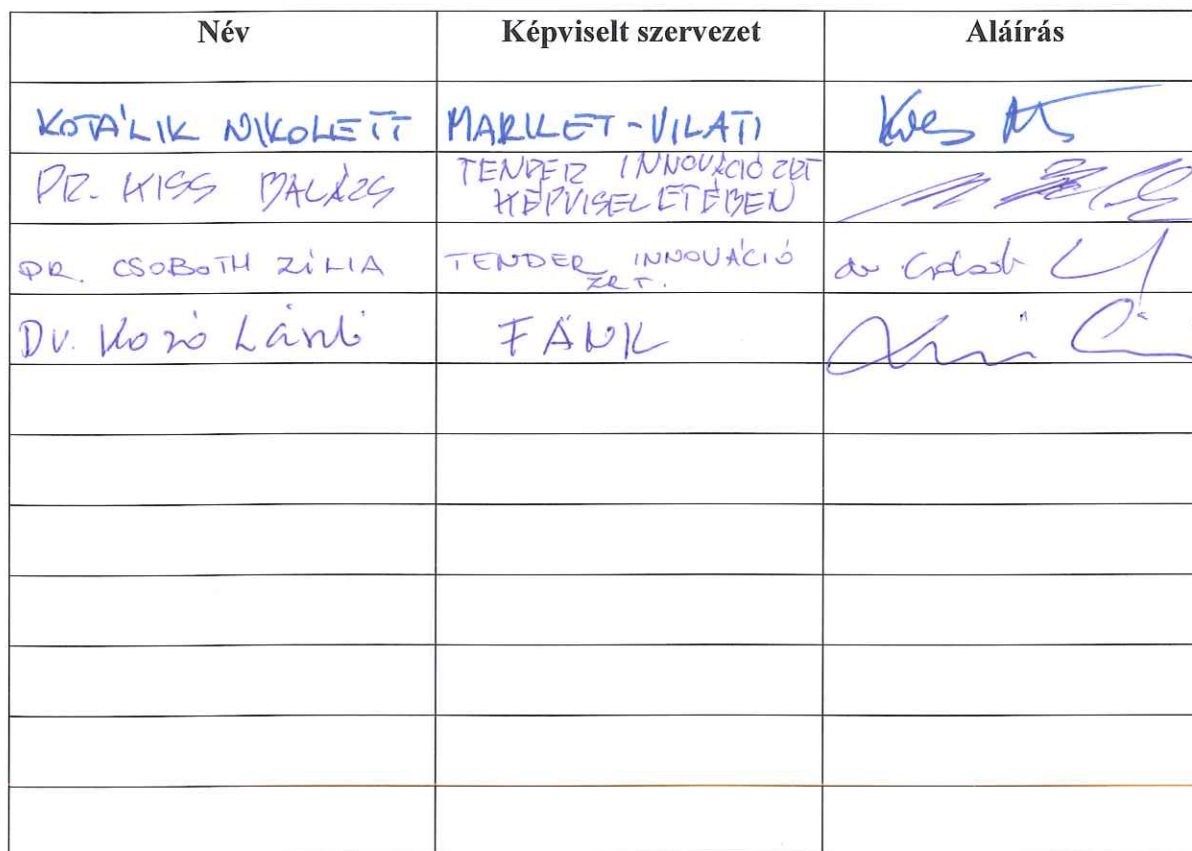 Név Képviselt szervezet Aláírás
KOTÁLIK NIKOLETT MARKET-VILATI
DR. KISS BALÁZS TENDER INNOVÁCIÓ ZRT
KÉPVISELETÉBEN
DR. CSOBOTH ZÍLIA TENDER INNOVÁCIÓ
ZRT.
Dr. Kozó László FÁNK